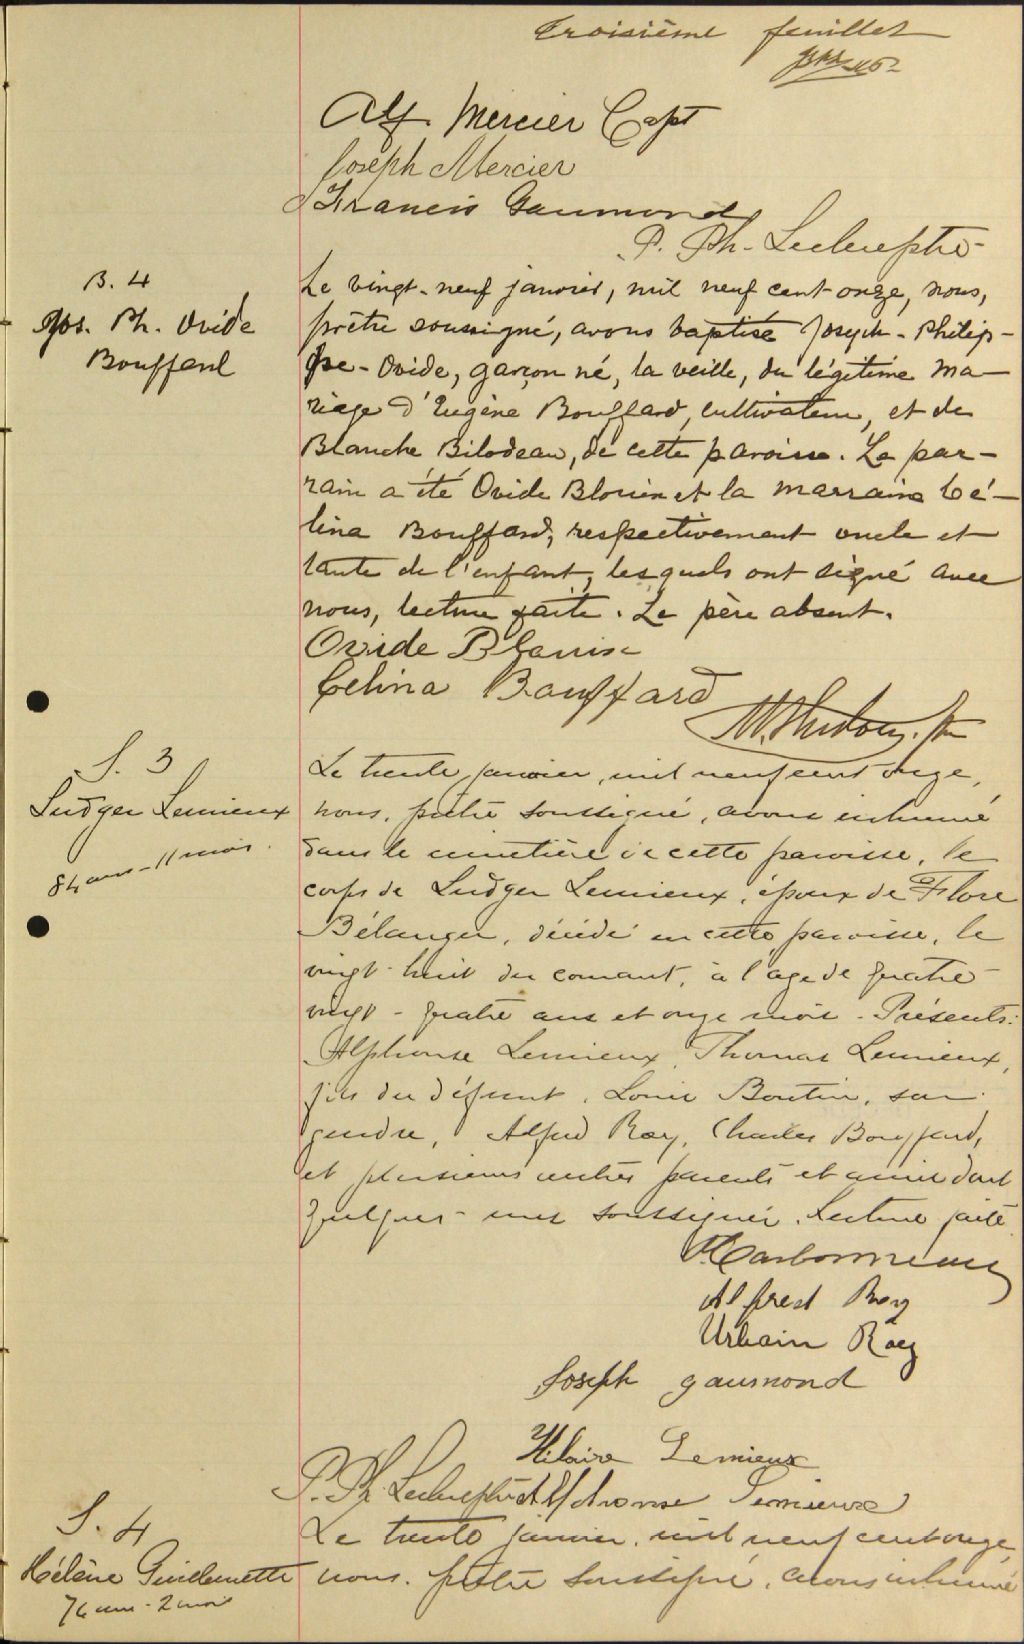 Troisième feuillet
Alf Mercier Capt
Joseph Mercier
Francis Gaumond
P. Ph. Leclerc ptre
B. 4
Jos. Ph. Ovide
Bouffard
Le vingt-neuf janvier, mil neuf cent onze, nous,
prêtre soussigné, avons baptisé Joseph-Philip-
pe-Ovide, garçon né, la veille, du légitime ma-
riage d'Eugène Bouffard, cultivateur, et de
Blanche Bilodeau, de cette paroisse. Le par-
rain a été Ovide Blouin et la marraine Cé-
lina Bouffard, respectivement oncle et
tante de l'enfant, lesquels ont signé avec
nous, lecture faite. Le père absent.
Ovide Blouin
Celina Bouffard
S. 3
Ludger Lemieux
84 ans - 11 mois.
Le trente janvier, mil neuf cent onze,
nous, prêtre soussigné, avons inhumé
dans le cimetière de cette paroisse, le
corps de Ludger Lemieux, époux de Flore
Bélanger, décédé en cette paroisse, le
vingt-huit du courant, à l'age de quatre-
vingt-quatre ans et onze mois - Présents:
Alphonse Lemieux, Thomas Lemieux,
fils du défunt, Louis Boutin, son
gendre, Alfred Roy, Charles Bouffard,
et plusieurs autres parents et amis dont
quelques-uns soussignés. Lecture faite.
Carbonneau
Alfred Roy
Urbain Roy
Joseph gaumond
Hilaire Lemieux
P. Ph. Leclerc ptre Alphonse Lemieux
S. 4
Hélène Guillemette
76 ans - 2 mois
Le trente janvier, mil neuf cent onze,
nous, prêtre soussigné, avons inhumé